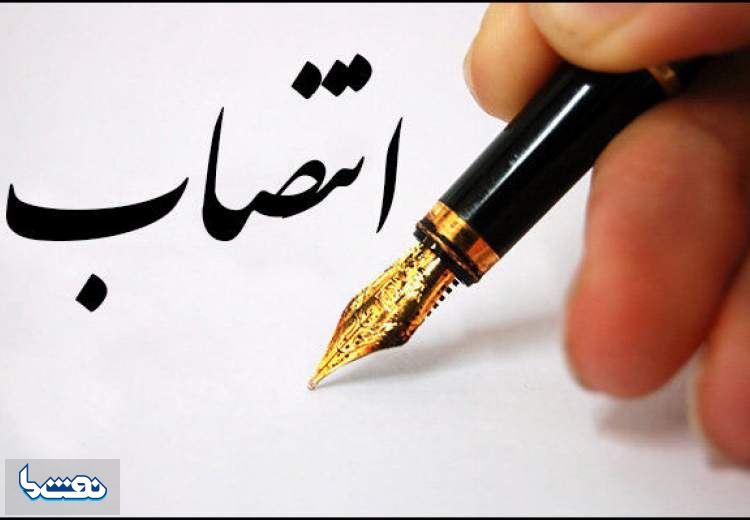 انتصاب
نفت ما